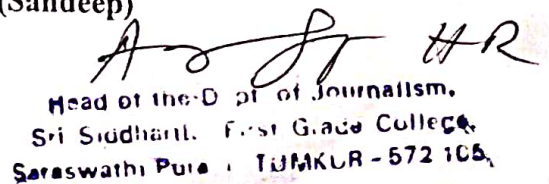 (Sandeep)
HR
Head of the D pt of Journalism,
Sri Siddhart. First Grade College,
Saraswathi Pura, TUMKUR - 572 105,